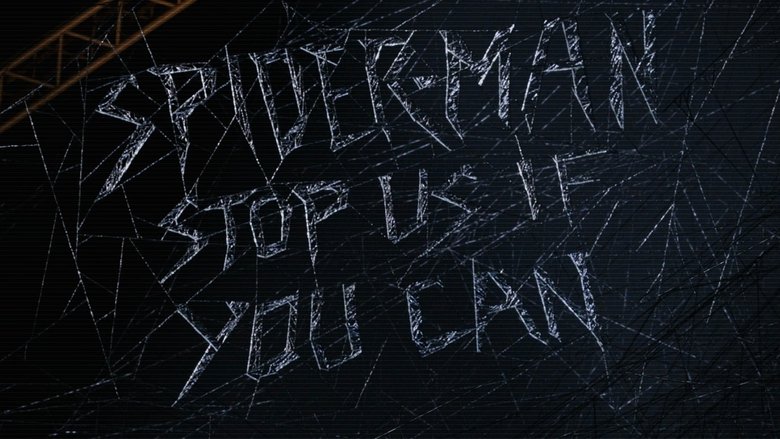 SPIDER-MAN
STOP US IF
YOU CAN